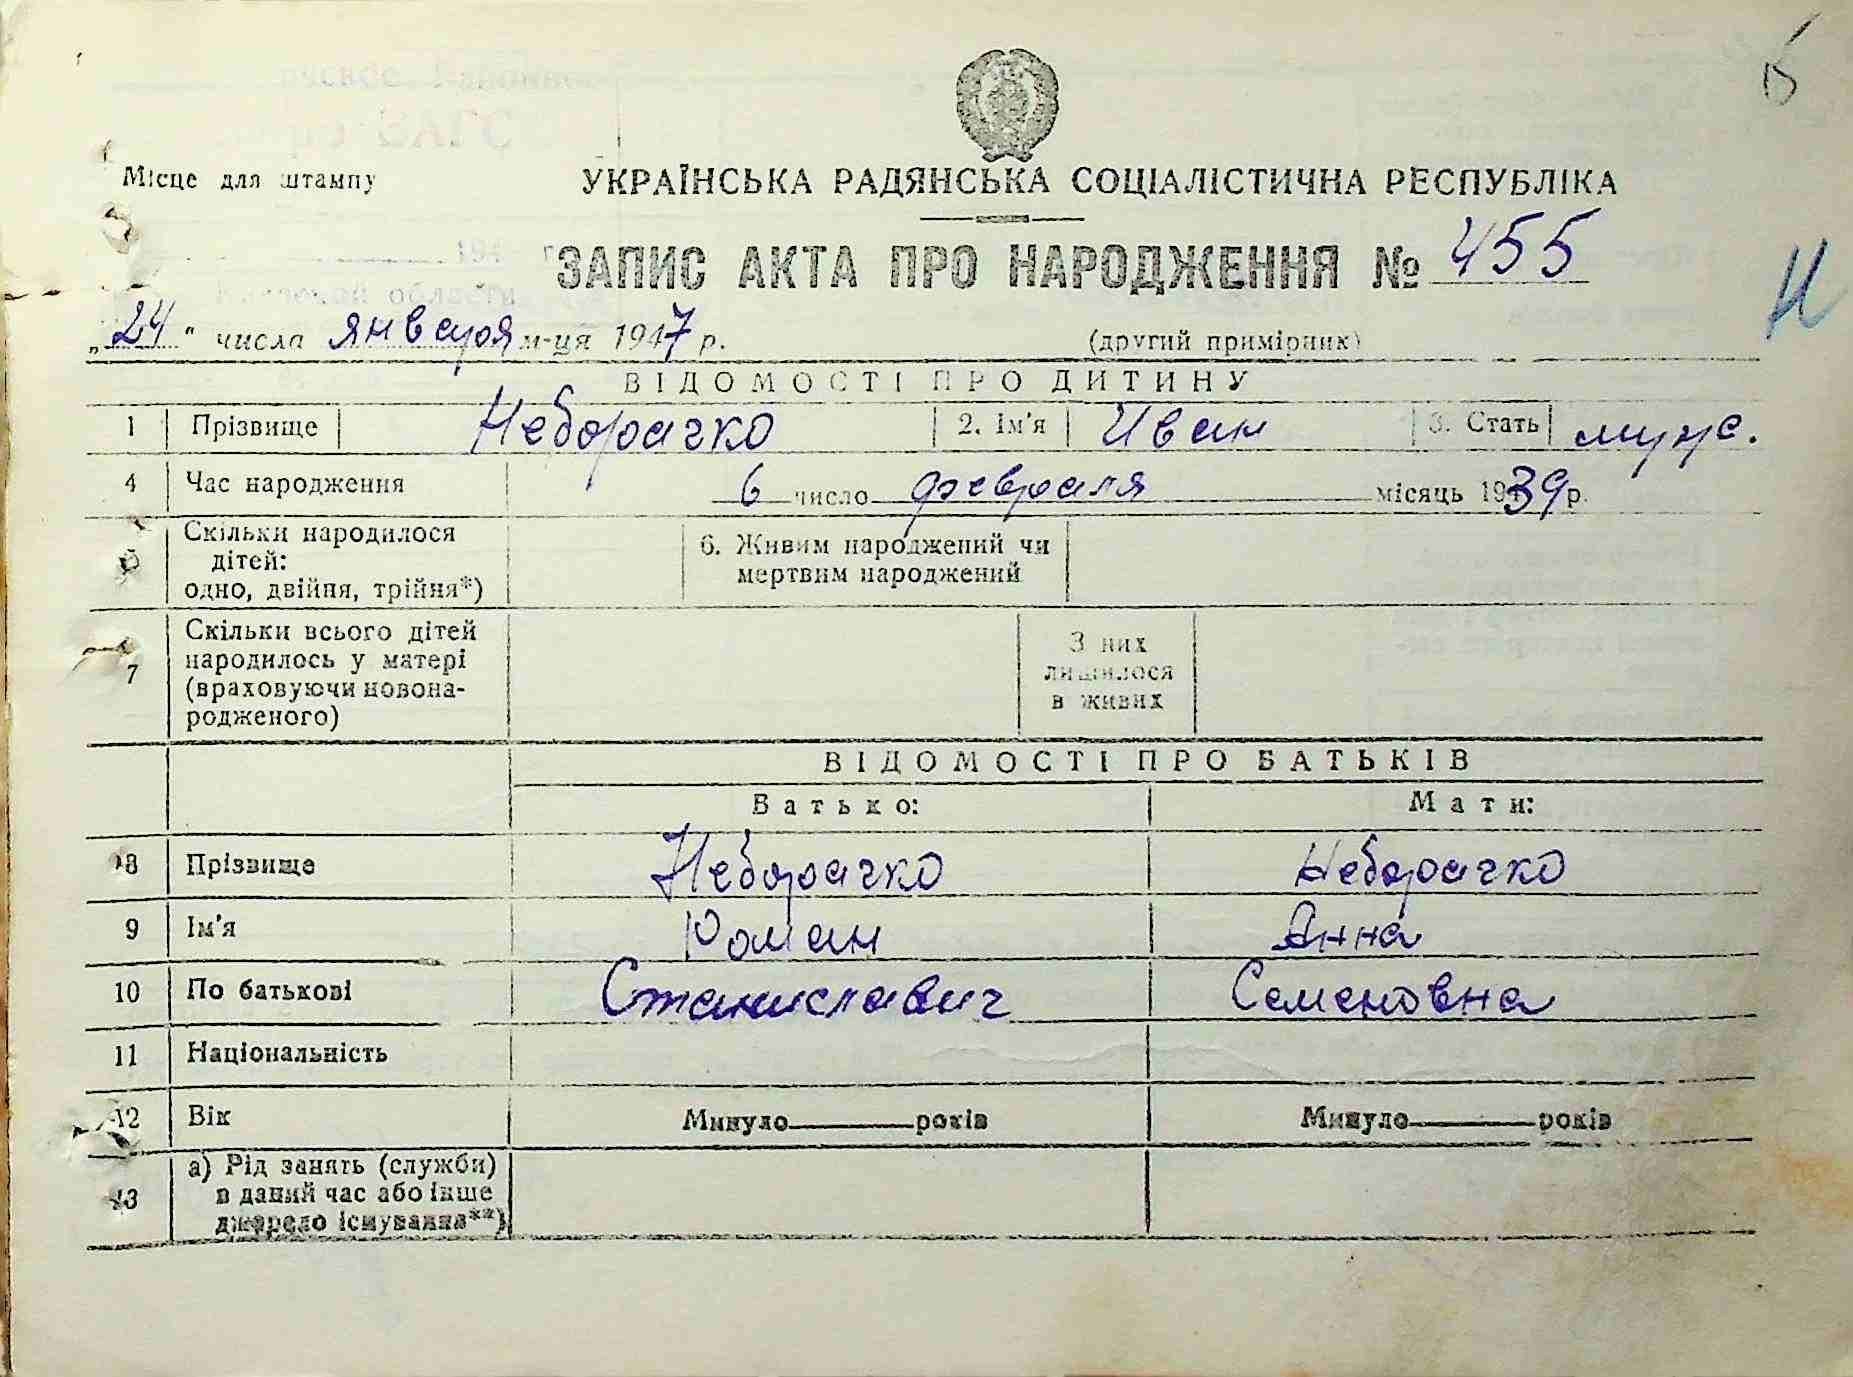 Місце для штампу
УКРАЇНСЬКА РАДЯНСЬКА СОЦІАЛІСТИЧНА РЕСПУБЛІКА
ЗАПИС АКТА ПРО НАРОДЖЕННЯ № 455
Н
„24“ числа января м-ця 1947 р. (другий примірник)
ВІДОМОСТІ ПРО ДИТИНУ
1 Прізвище Неборачко 2. Ім'я Иван 3. Стать муж.
4 Час народження 6 число февраля місяць 1939 р.
5 Скільки народилося дітей: одно, двійня, трійня*) 6. Живим народжений чи мертвим народжений
7 Скільки всього дітей народилось у матері (враховуючи новонародженого) З них лишилося в живих
ВІДОМОСТІ ПРО БАТЬКІВ
Батько: Мати:
8 Прізвище Неборачко Неборачко
9 Ім'я Роман Анна
10 По батькові Станиславич Семеновна
11 Національність
12 Вік Минуло років Минуло років
13 а) Рід занять (служби) в даний час або інше джерело існування**)